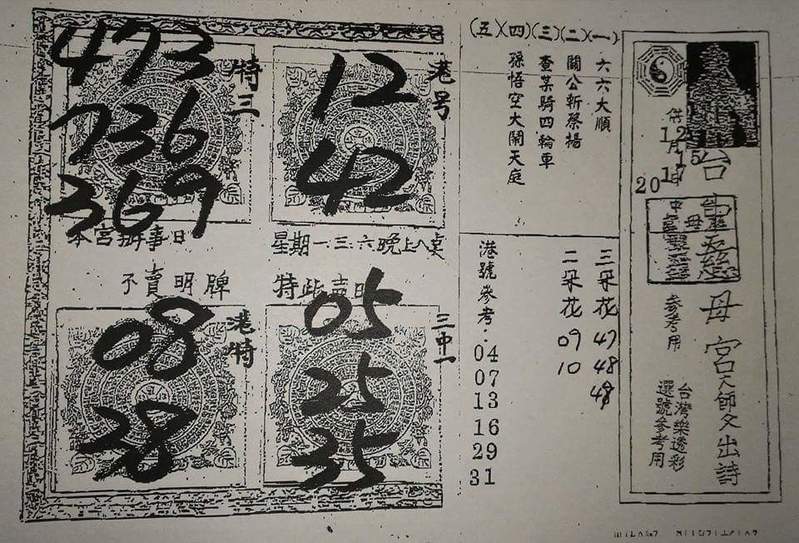 供
12月15
2017
母宮
出詩
參考用
台灣樂透彩
選號參考用
(一)
(二)
(三)
(四)
(五)
六六大順
關公斬蔡揚
查某騎四輪車
孫悟空大鬧天庭
三朵花 47 48
二朵花 09 10
港號參考:
04
07
13
16
29
31
港号
12
42
特三
473
736
369
本宮辦事日
星期一.三.六晚上八
不賣明牌
特此聲明
三中一
05
25
35
港特
08
38